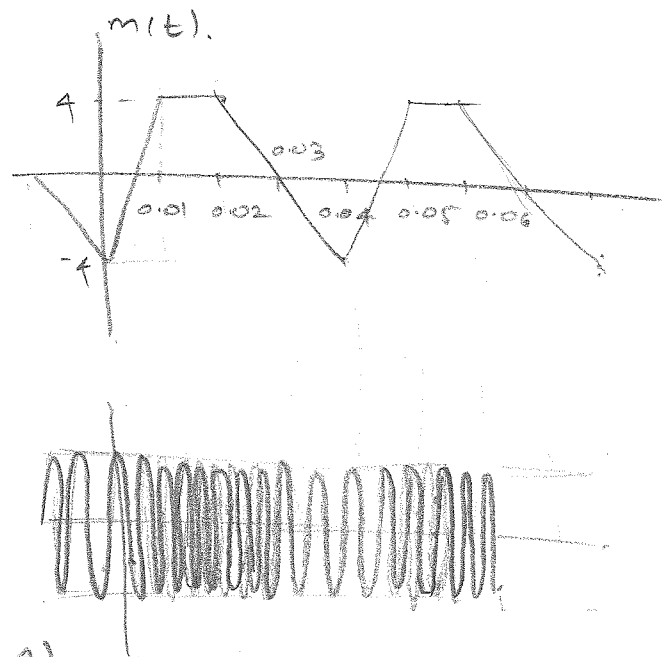 m(t).
4
0.03
0.01 0.02 0.04 0.05 0.06
-4